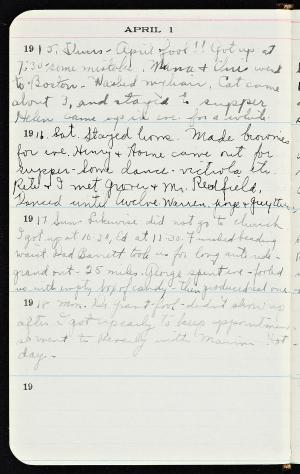 APRIL 1
1915. Thurs - April fool!! Got up at
7:30 - some mistake. Mama & went
to Boston - Washed my hair, Cat came
about 3, and stayed to supper
Helen came up in eve. for a while.
1916 Sat. Stayed home. Made brownies
for eve. Henry & came out for
supper - home dance - victrola etc.
& I met & Mr. Redfield,
Danced until twelve Warren,
1917 Sun - Likewise did not go to church
I got up at 10:30, Ed at 11:30. Finished reading
Dad Barrett took us for long auto ride -
grand out - 25 miles. George spent eve - fooled
us with empty box of candy - then produced real one
1918 Mon. fool - didn't show up
after I got up early to keep appointment,
so went to with
day -
19